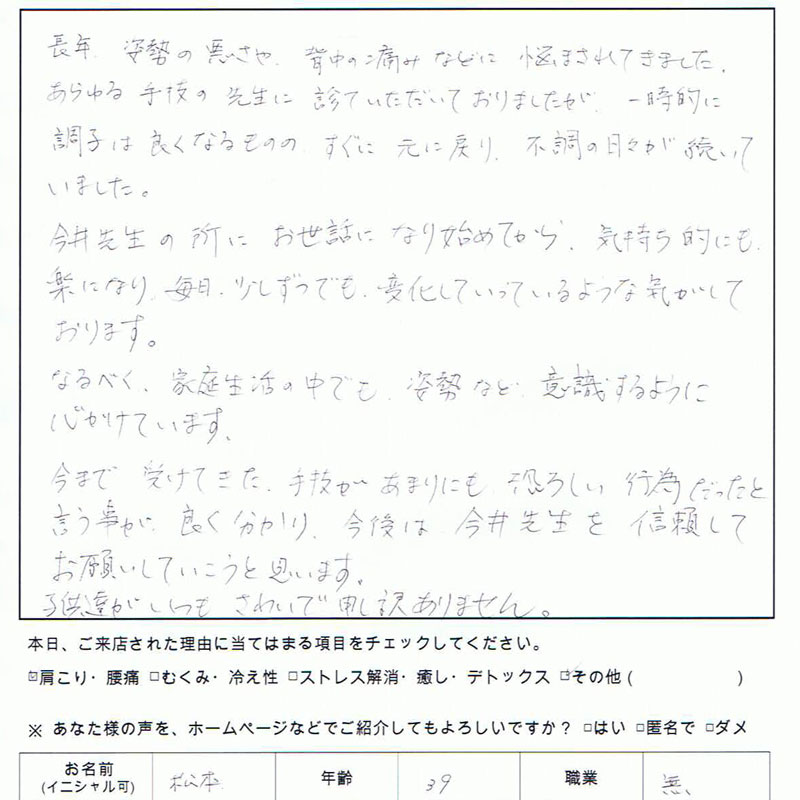 長年、姿勢の悪さや、背中の痛みなどに悩まされてきました。
あらゆる手技の先生に診ていただいておりましたが、一時的に
調子は良くなるものの、すぐに元に戻り、不調の日々が続いて
いました。
今井先生の所にお世話になり始めてから、気持ち的にも、
楽になり、毎日、少しずつでも、変化していっているような気がして
おります。
なるべく、家庭生活の中でも、姿勢など、意識するように
心がけています。
今まで受けてきた、手技があまりにも、恐ろしい行為だったと
言う事が、良く分かり、今後は、今井先生を信頼して
お願いしていこうと思います。
子供達がいつもさわいで申し訳ありません。
本日、ご来店された理由に当てはまる項目をチェックしてください。
☑肩こり・腰痛 □むくみ・冷え性 □ストレス解消・癒し・デトックス ☑その他 ( )
※ あなた様の声を、ホームページなどでご紹介してもよろしいですか？ □はい □匿名で □ダメ
お名前 松本 年齢 39 職業 無
(イニシャル可)